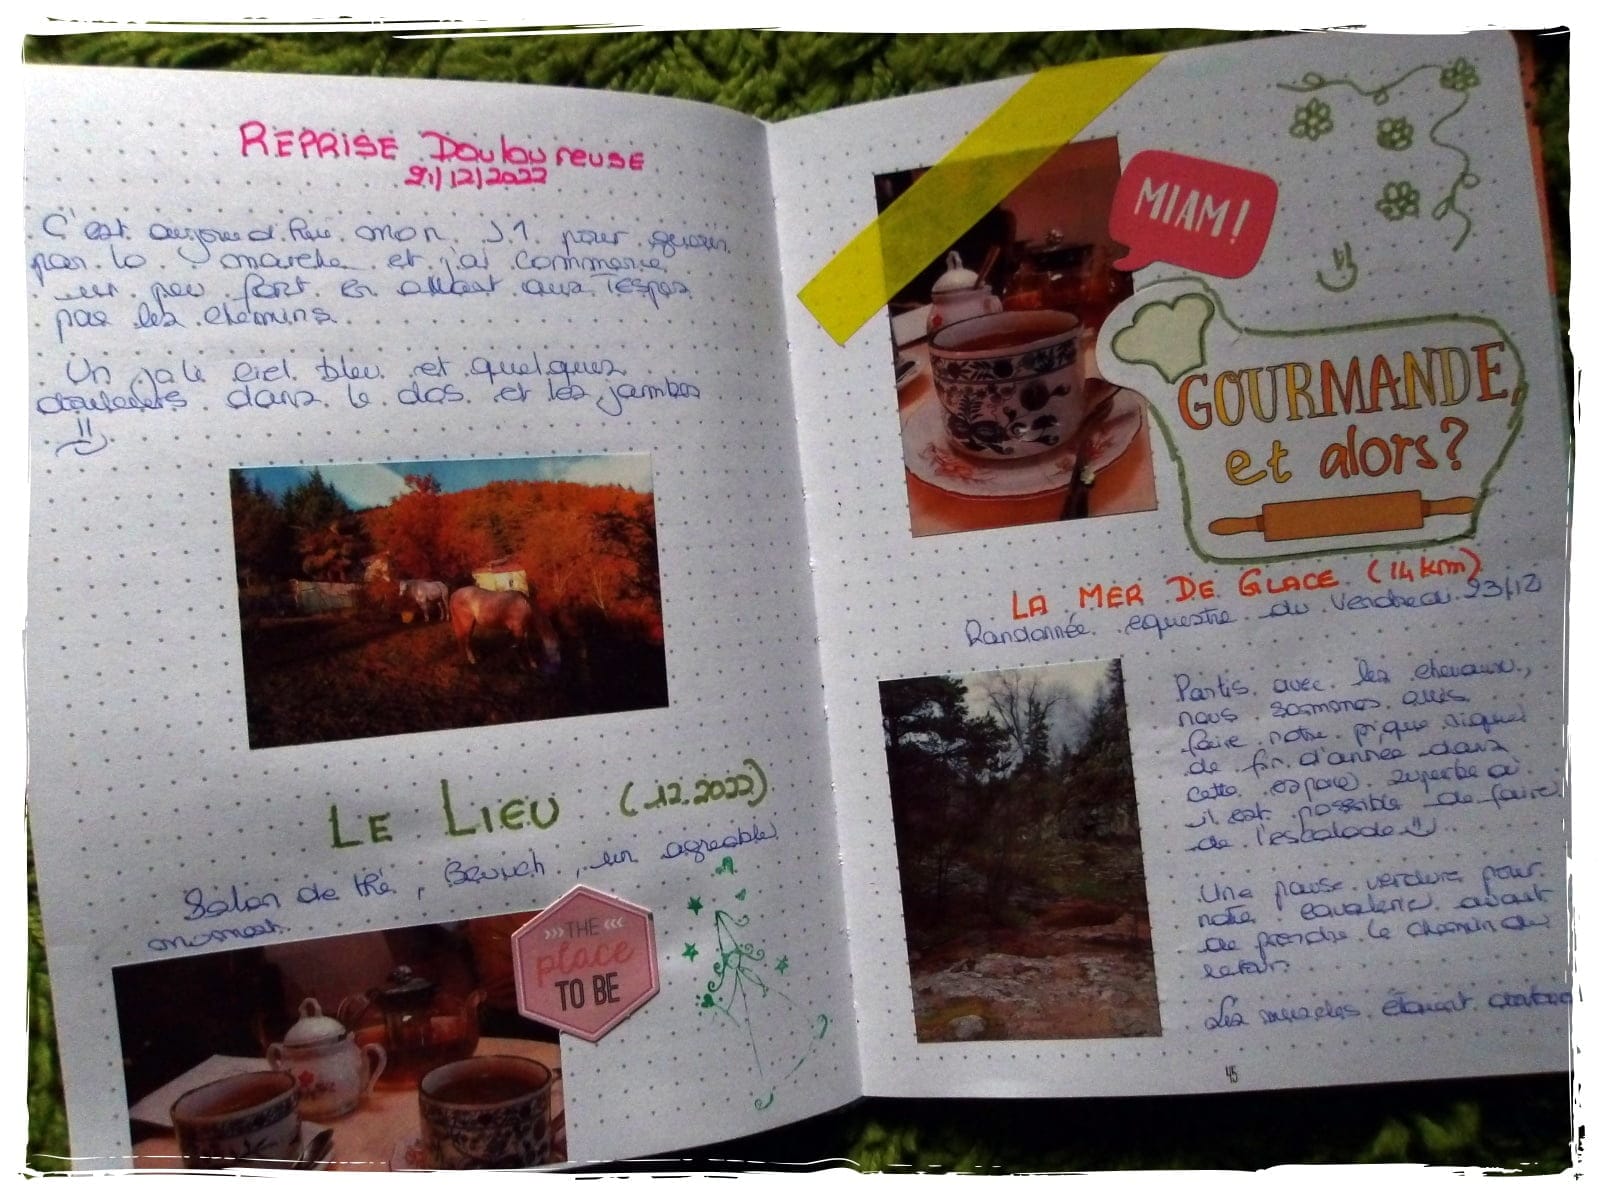 REPRISE Douloureuse
21/12/2022
C'est aujourd'hui mon J1 pour guérir
par la marche et j'ai commencé
un peu fort en allant aux
par les chemins.
Un joli ciel bleu et quelques
douleurs dans le dos et les jambes
LE LIEU (12.2022)
Salon de thé, Brunch, un agréable
moment.
>>> THE <<<
place
TO BE
MIAM!
GOURMANDE,
et alors?
LA MER DE GLACE (14km)
Randonnée equestre du Vendredi 23/12
Partis avec les chevaux,
nous sommes allés
faire notre pique nique
de fin d'année dans
cette espace superbe où
il est possible de faire
de l'escalade
Une pause verdure pour
notre cavalerie avant
de prendre le chemin du
retour.
Les muscles étaient
45